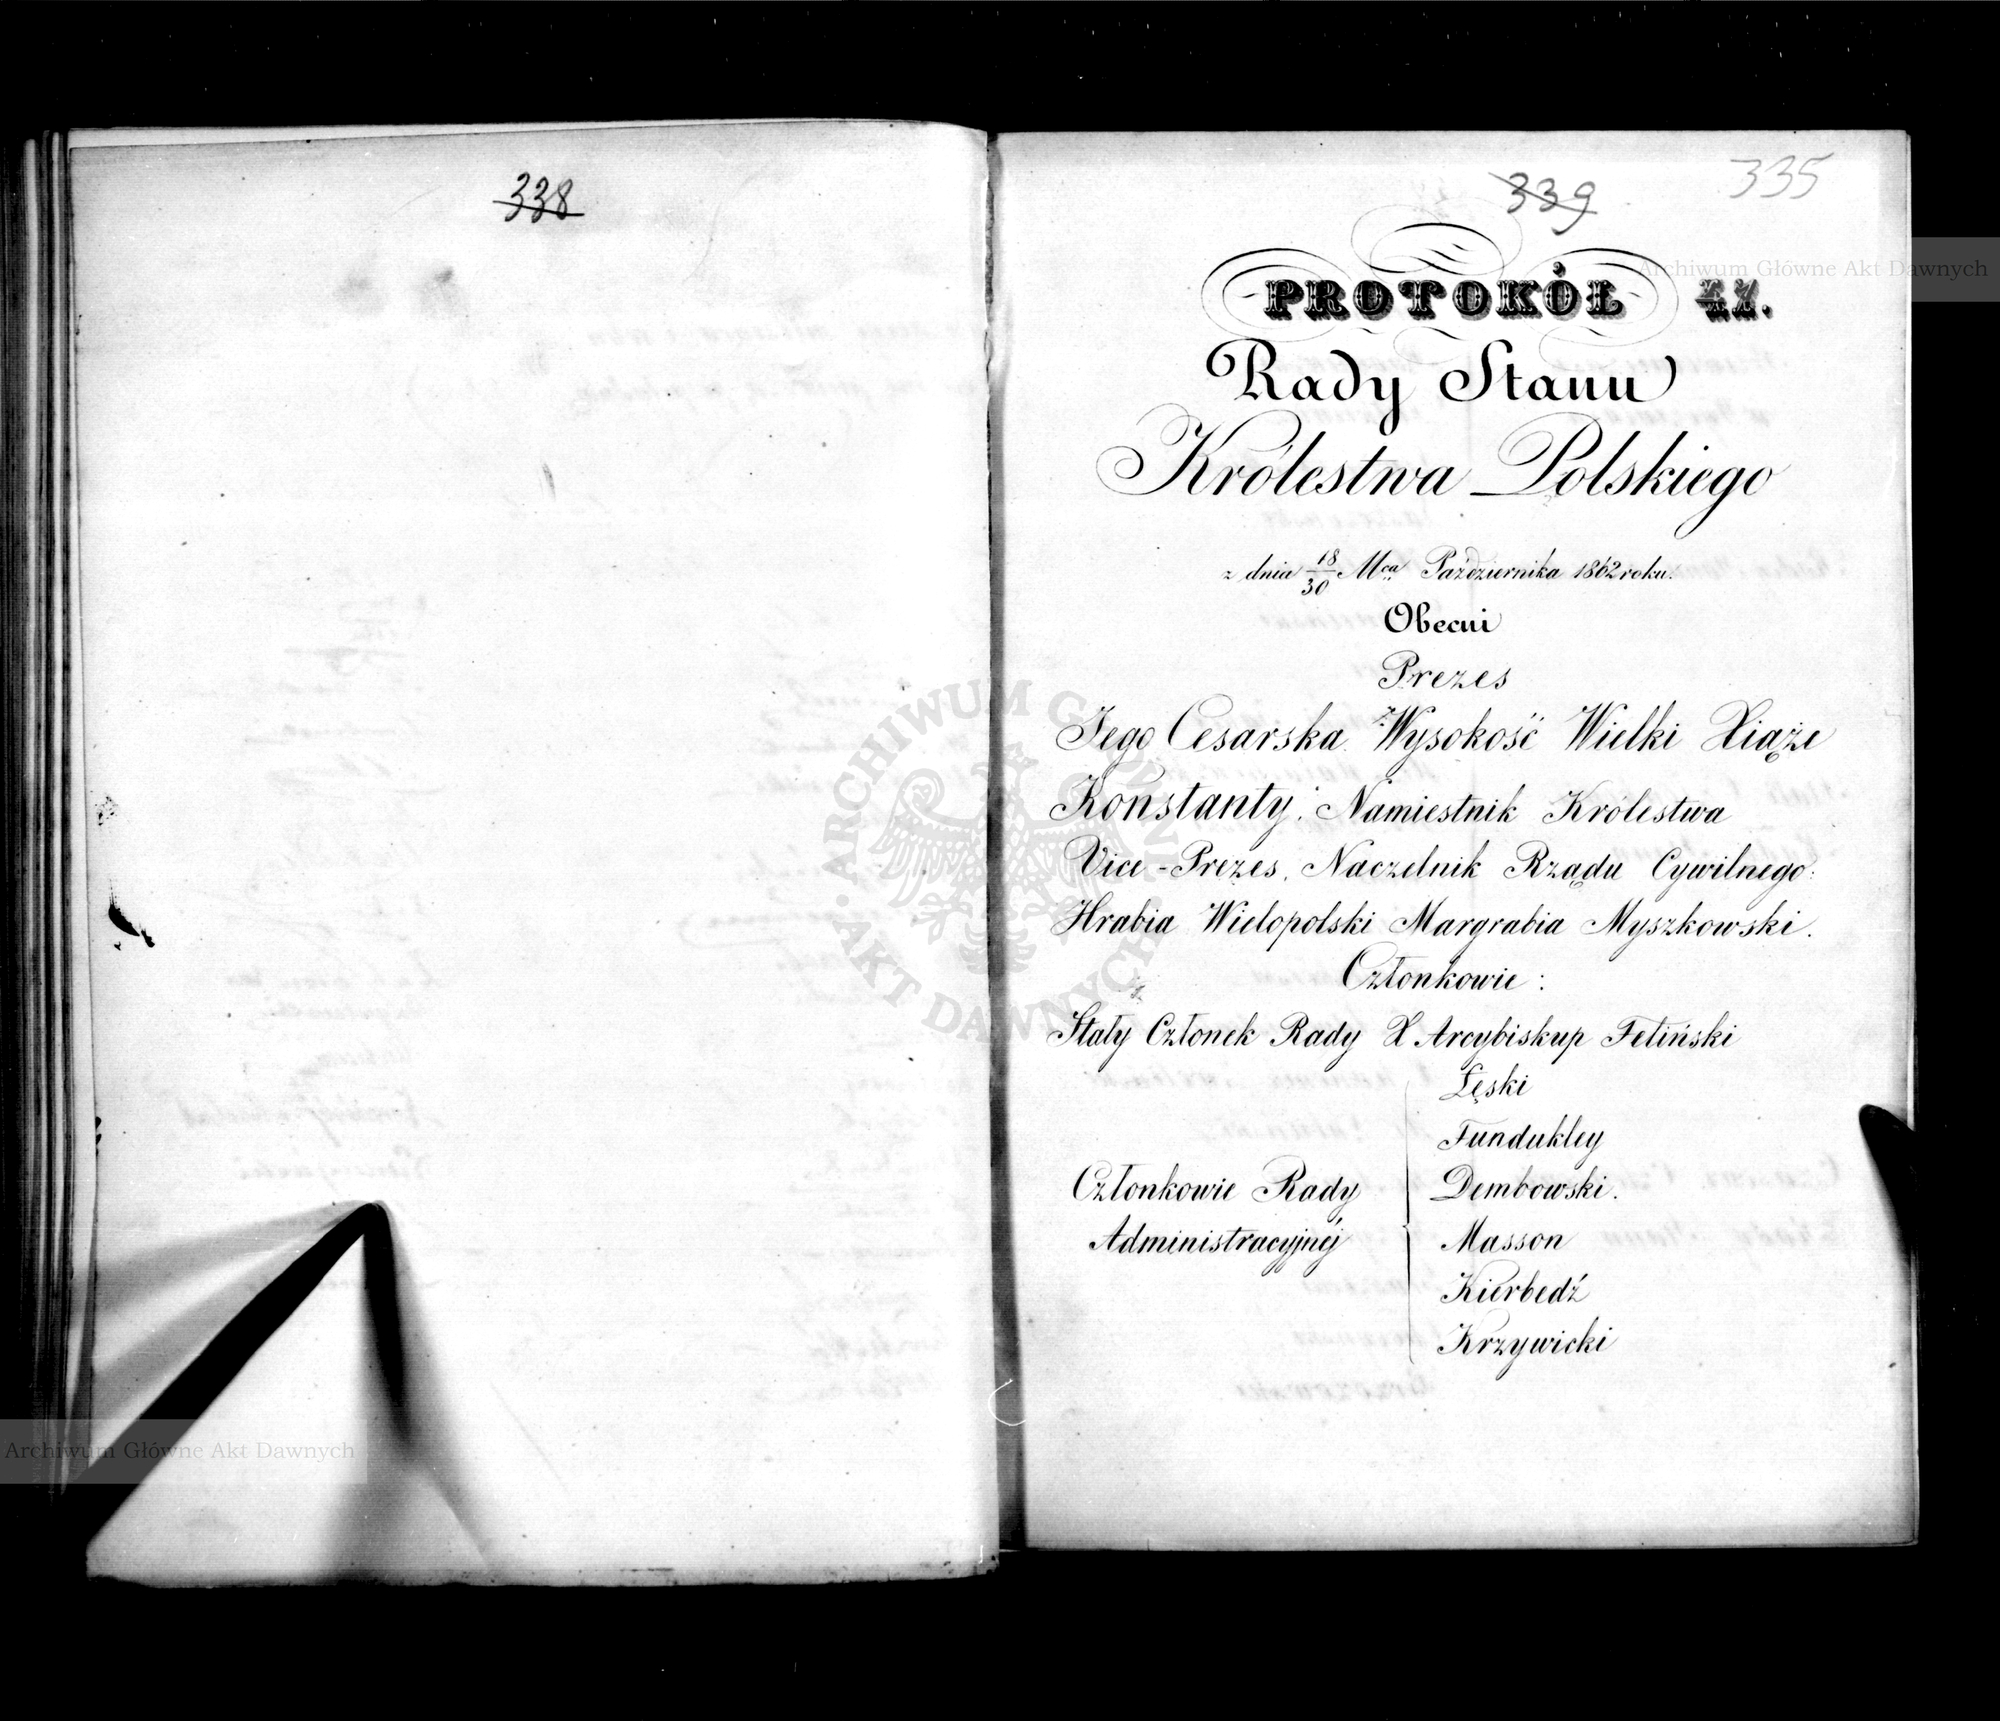 338
339
335
PROTOKÓŁ
Rady Stanu
Królestwa Polskiego
z dnia 18/30 Mca Października 1862 roku.
Obecni
Prezes
Jego Cesarska Wysokość Wielki Xiąże
Konstanty, Namiestnik Królestwa
Vice-Prezes, Naczelnik Rządu Cywilnego:
Hrabia Wielopolski Margrabia Myszkowski.
Członkowie:
Stały Członek Rady X Arcybiskup Feliński
Łęski
Fundukley
Członkowie Rady Dembowski.
Administracyjnéj Masson
Kierbedź
Krzywicki
Archiwum Główne Akt Dawnych
Archiwum Główne Akt Dawnych
ARCHIWUM GŁÓWNE AKT DAWNYCH